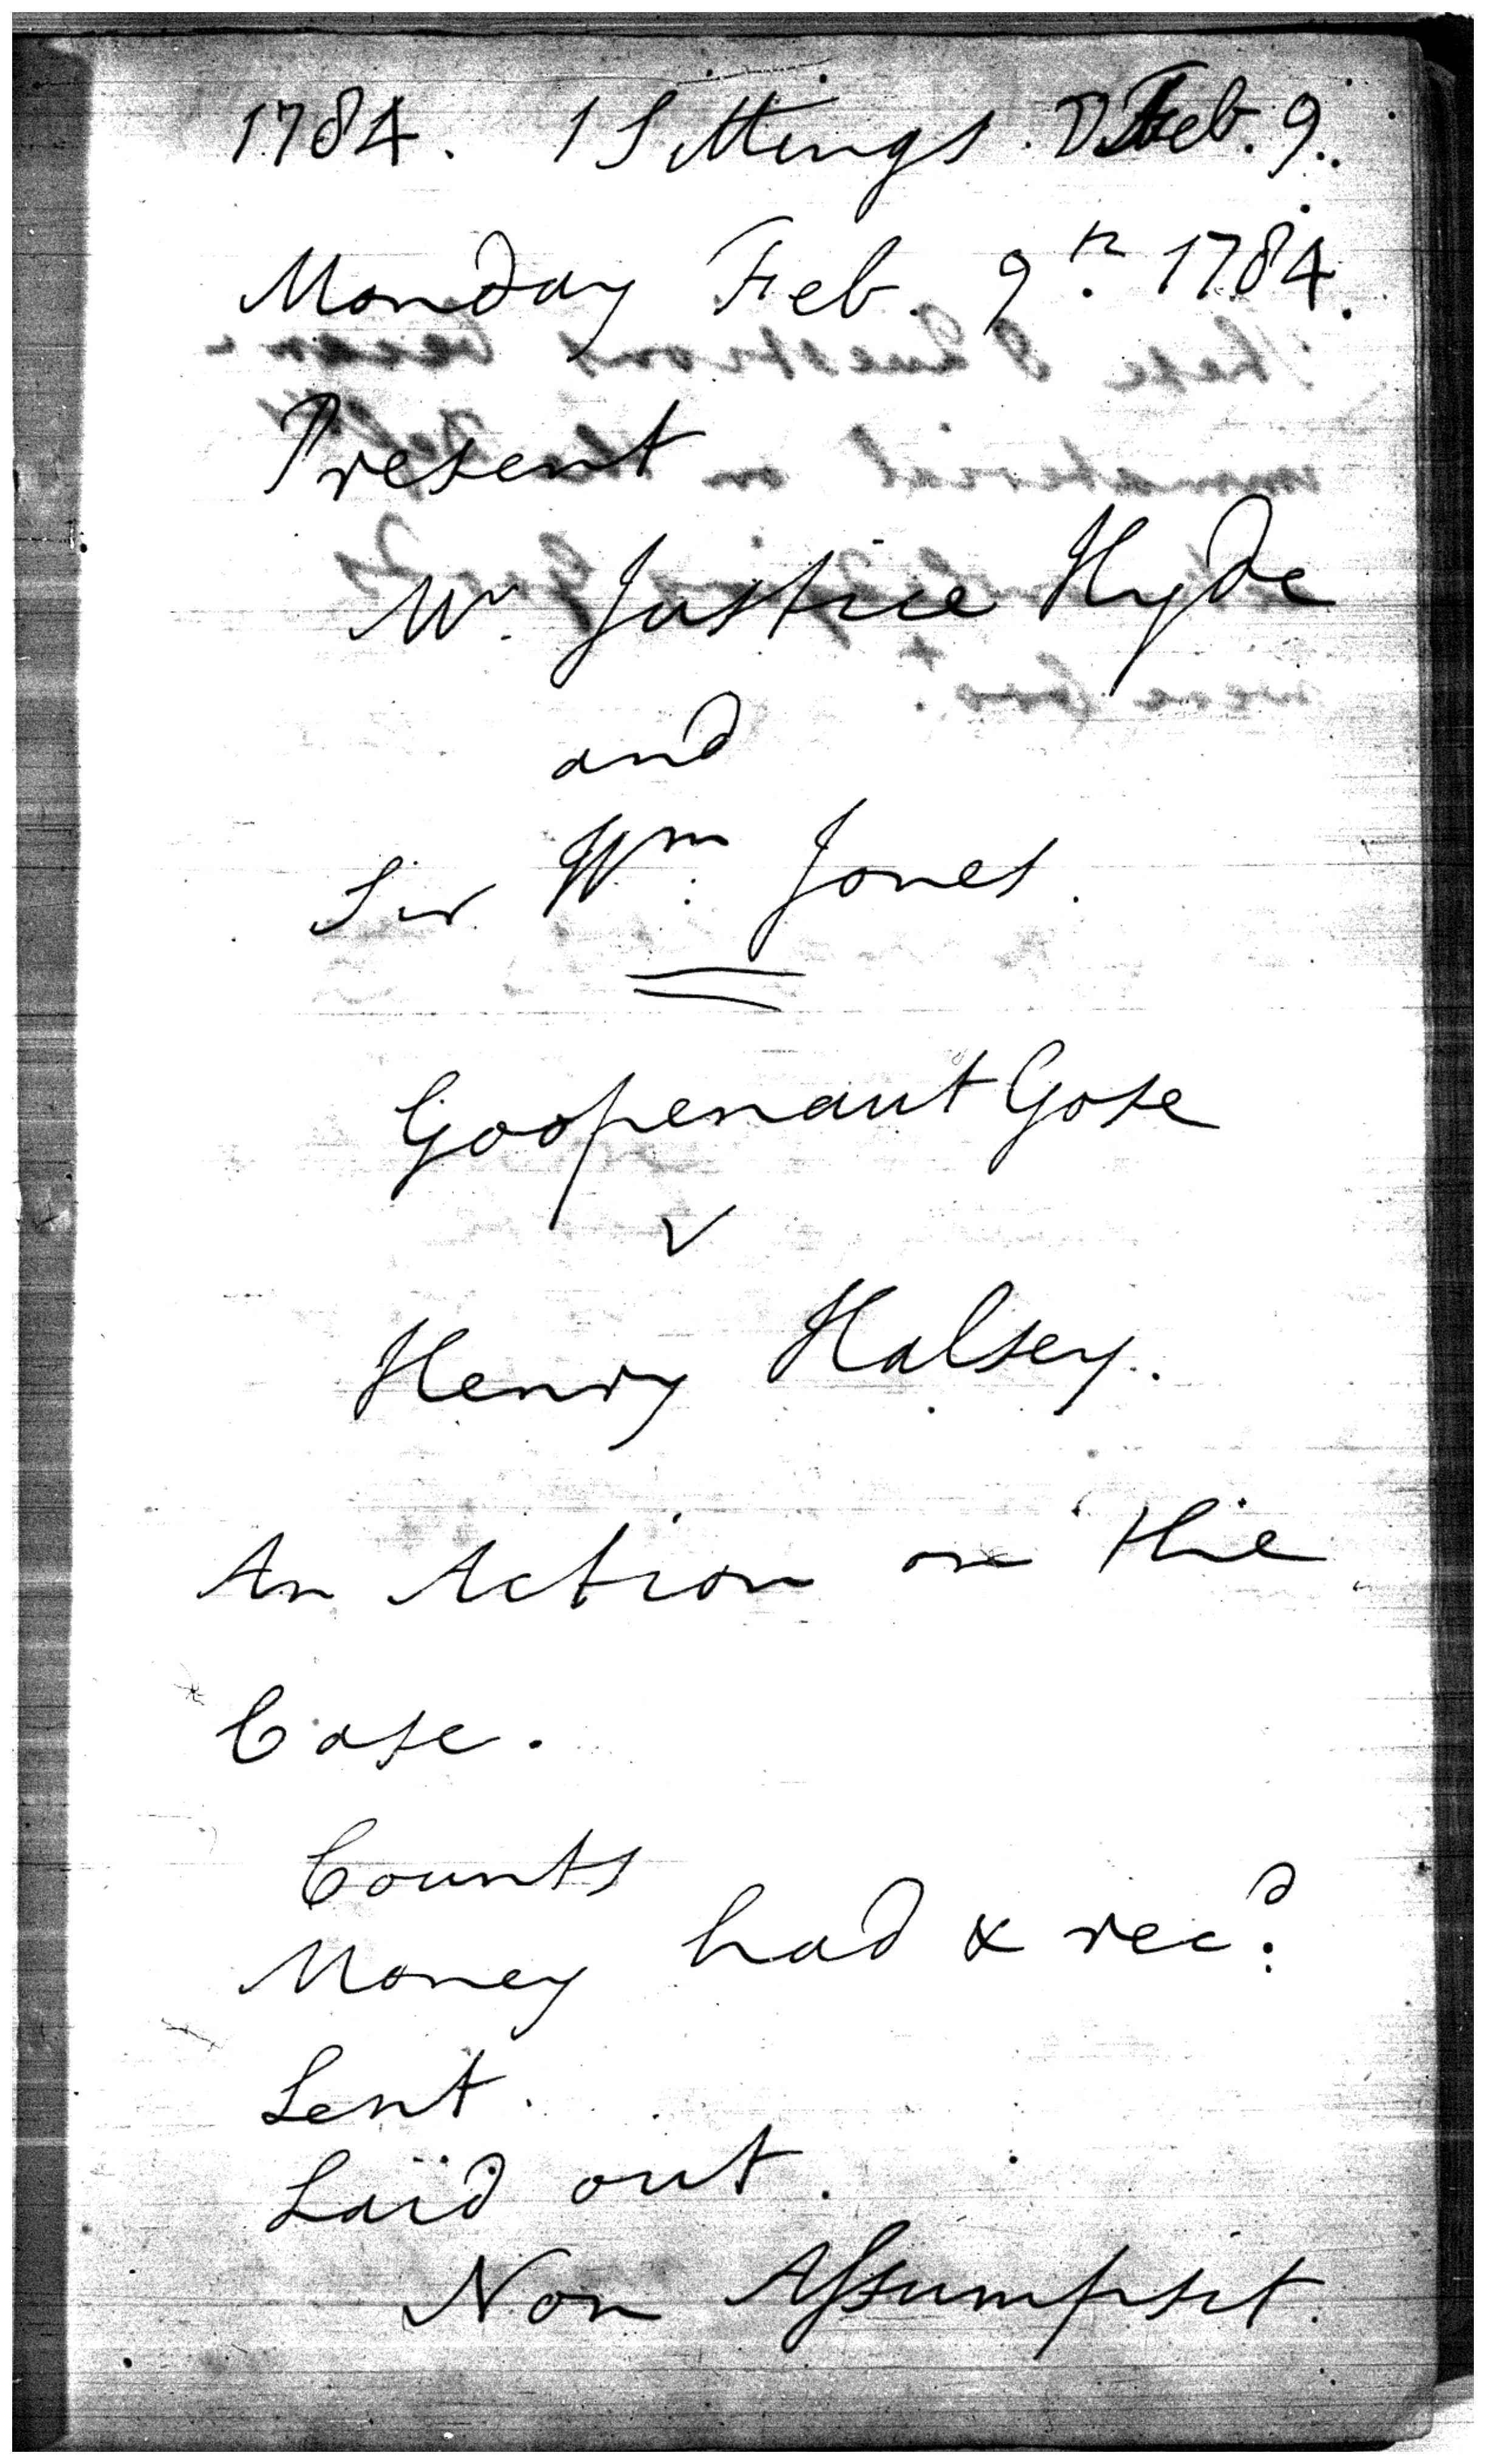 1784. 1 Sittings. Feb. 9.
Monday Feb. 9th. 1784.
Present
Mr. Justice Hyde
and
Sir Wm. Jones.
Goopenaut Gose
v
Henry Halsey.
An Action on the
Case.
Counts
Money had & recd.
Lent.
Laid out.
Non Assumpsit.